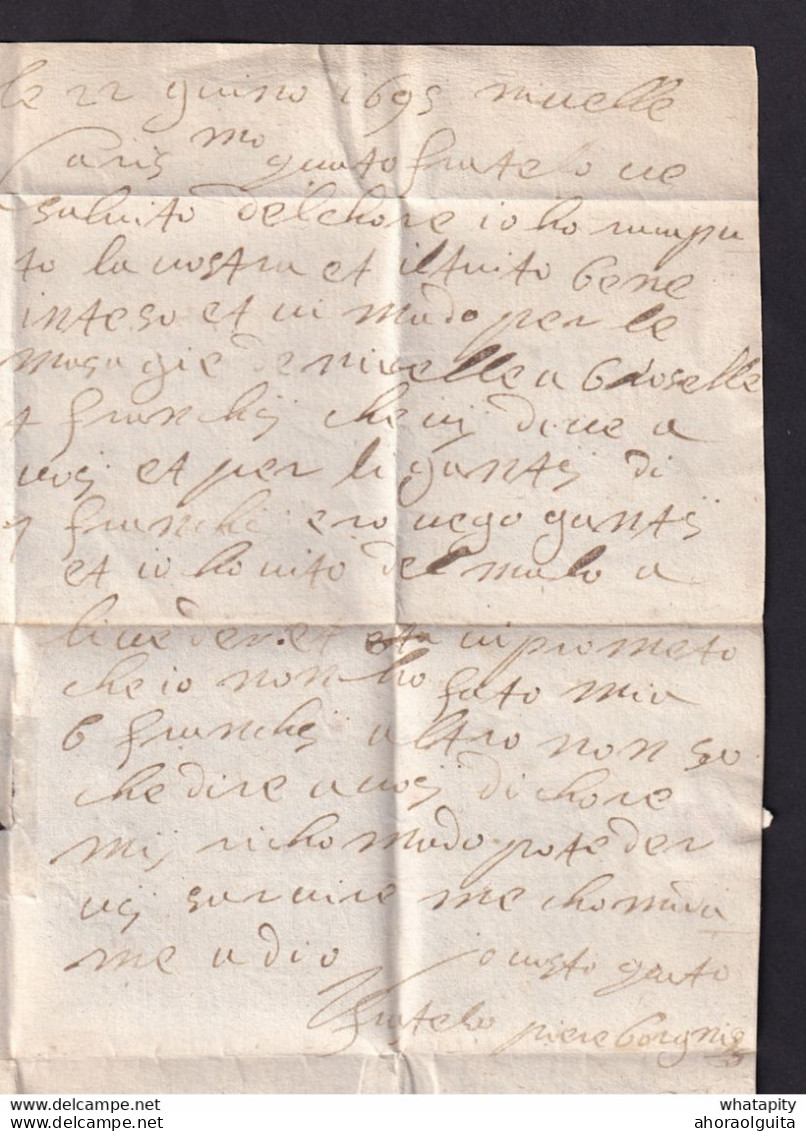 le 22 guino 1695 nivelle
Caris mo qunto fratelo ve
saluito del chore io ho rimpu
to la vostra et il tuito bene
inteso et vi mado per le
masagie de nivelle a broselle
4 franchi che vij dive a
voij et per li gantij di
franchi ero vego gantij
et io ho uito del malo a
li veder et vi prometo
che io non ho fato mia
6 franchij altro non so
che dire a voij di chore
mij richomado pote der
vij servire me chomāda
me adio vosto qunto
fratelo piere borgnis
whatapity
ahoraolguita